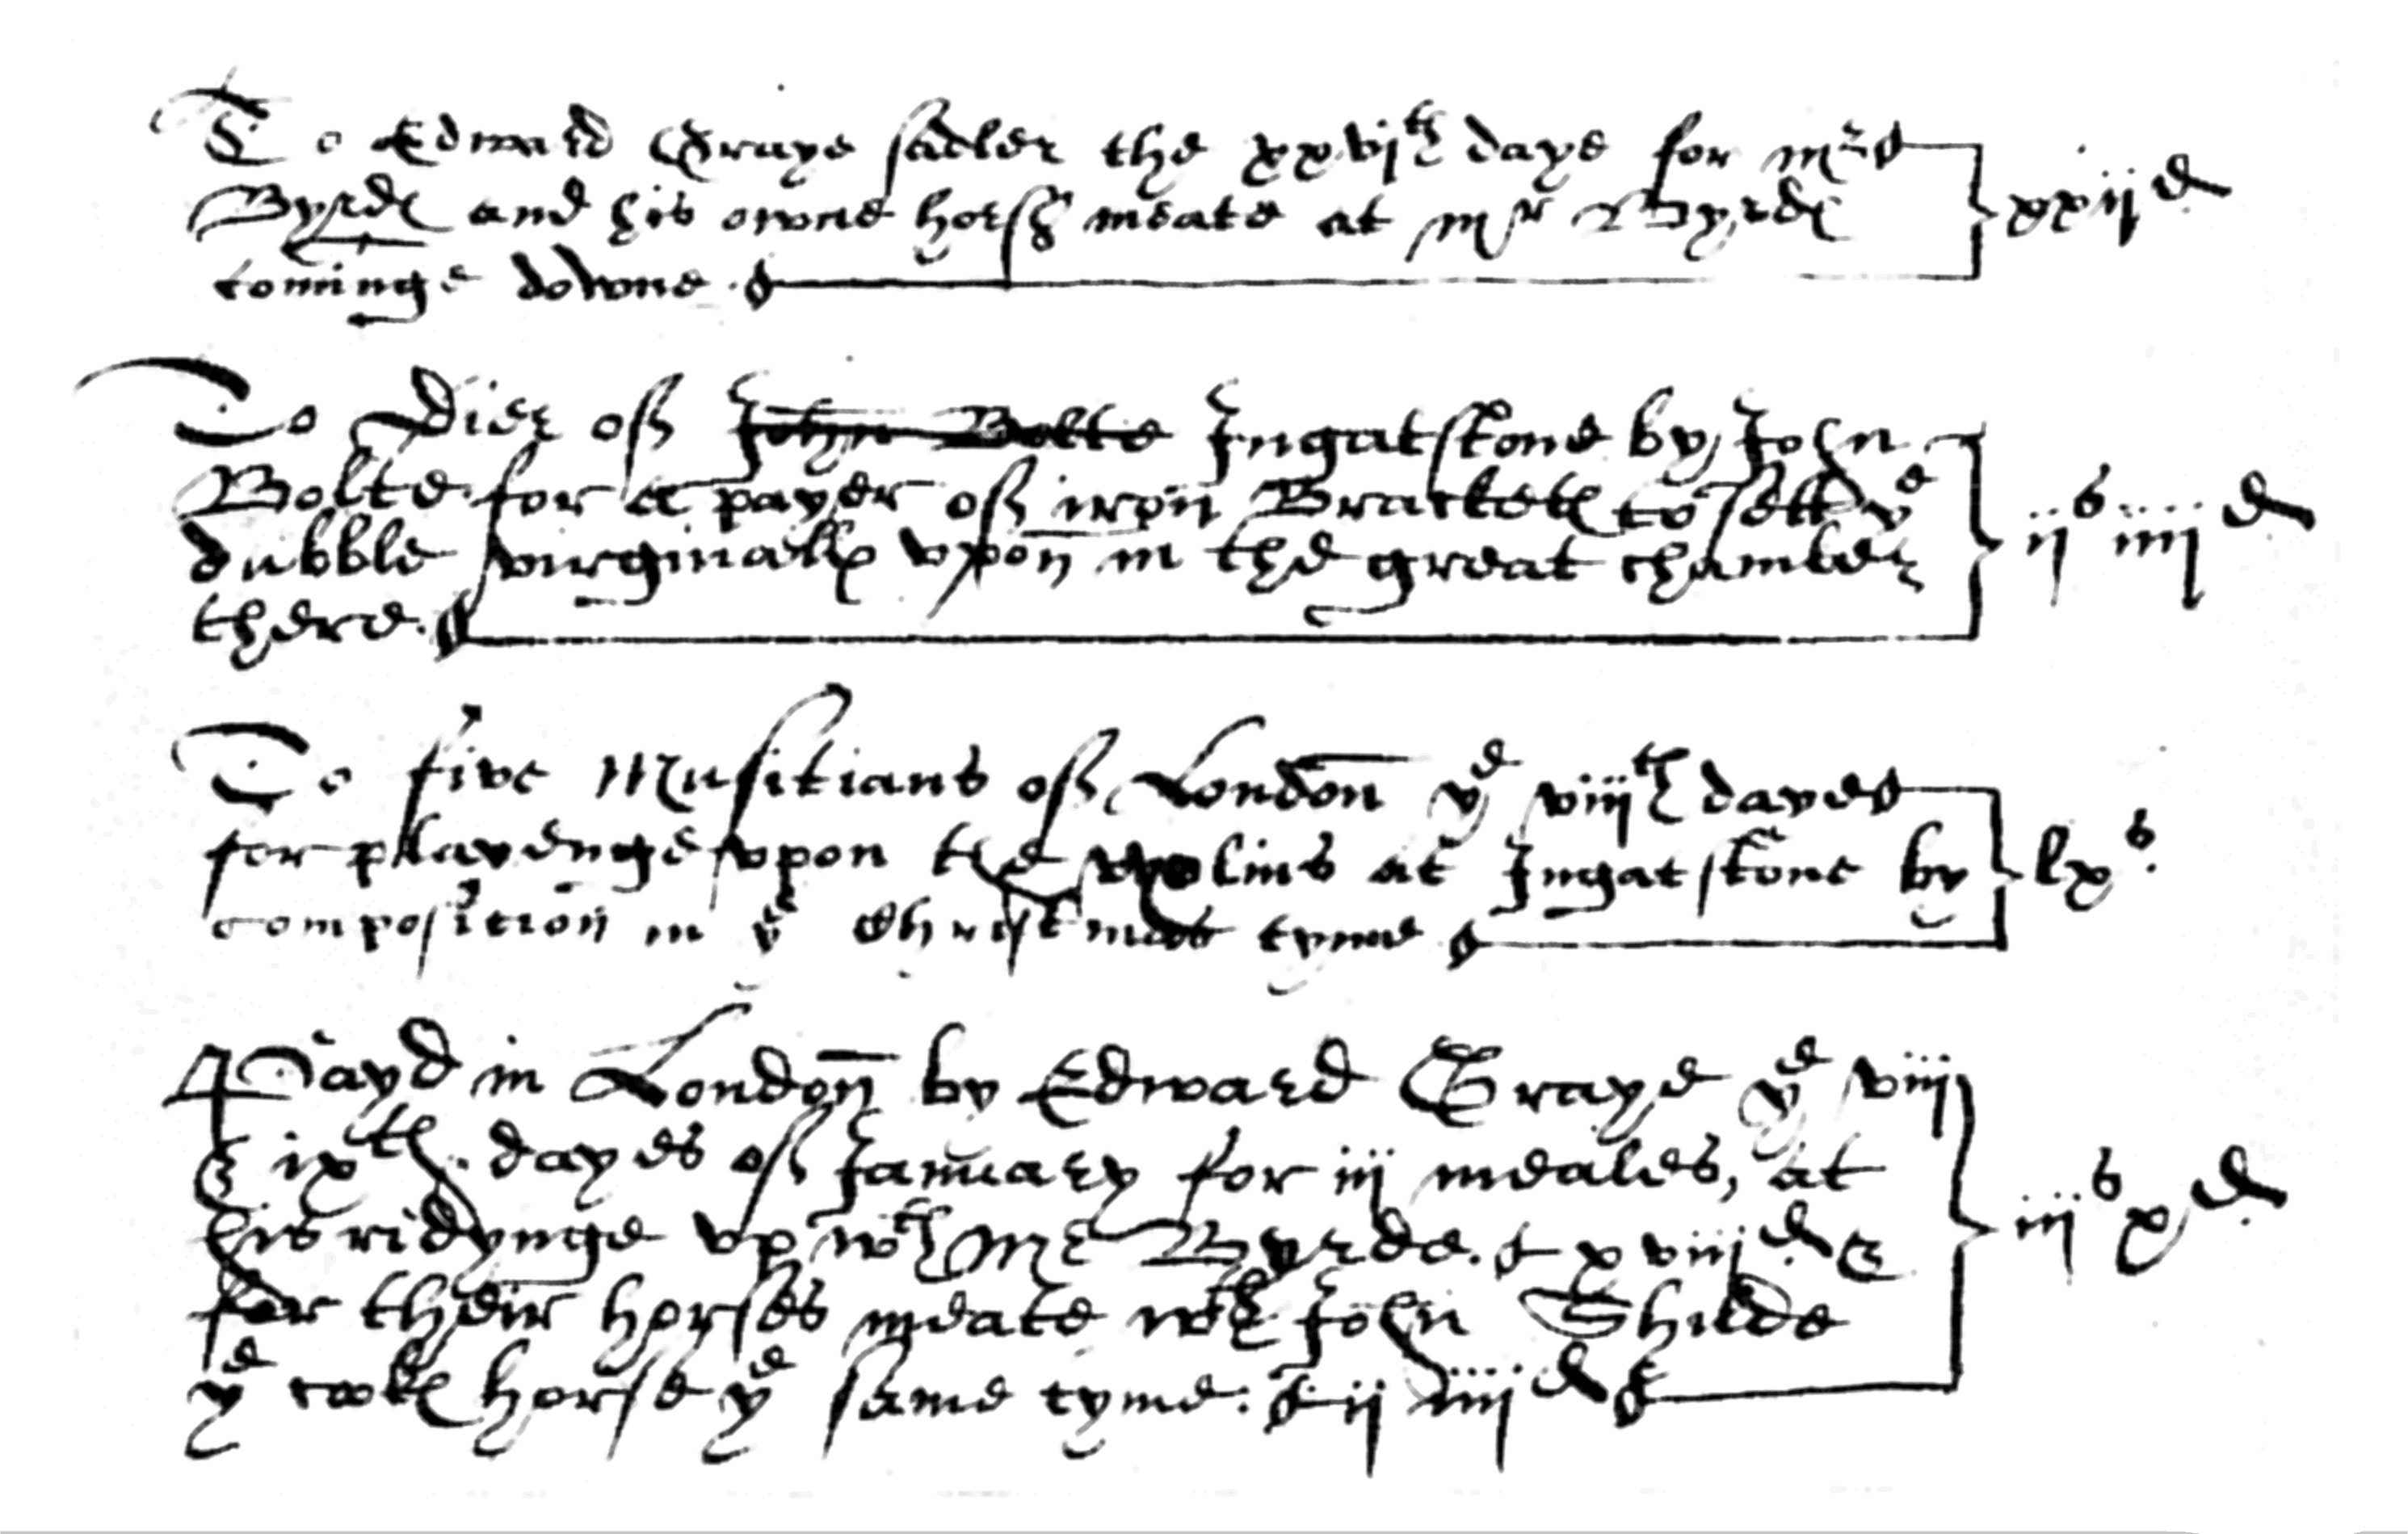 To Edward Graye sadler the xxvijth daye for mr
Byrdes and his owne horsse meate at mr Byrdes xxijd
cominge downe.
To Dier of John Bolte Ingatstone by John
Bolte for a payer of iron Brackets to sett ye
dubble virginalls vpon in the great chamber ijs iiijd
there.
To five Musitians of London ye viijth daye
for playenge vpon the violins at Ingatstone by lxs.
composition in ye Christmas tyme
Payd in London by Edward Graye ye viij
& ixth. dayes of January for iij meales, at
his ridynge vp wth Mr Byrde. xviijd & iijs xd
for their horses meate wth John Shilde
ye cooks horse ye same tyme: ijs iiijd